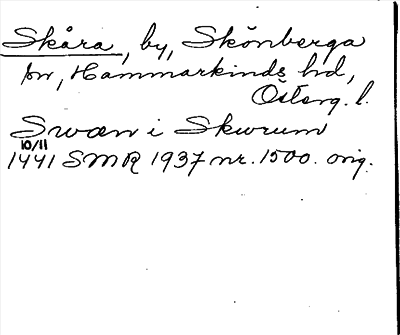 Skåra, by, Skönberga
sn, Hammarkinds hd,
Österg. l.
Swæn i Skwrum
10/11
1441 SMR 1937 nr. 1500. orig.